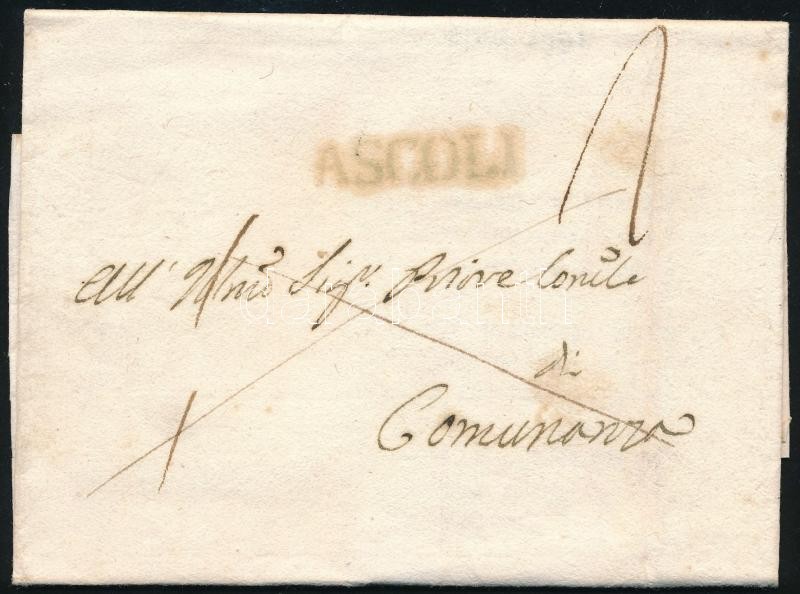 ASCOLI
All' Illmo Sigr. Priore Comle
di
Comunanza